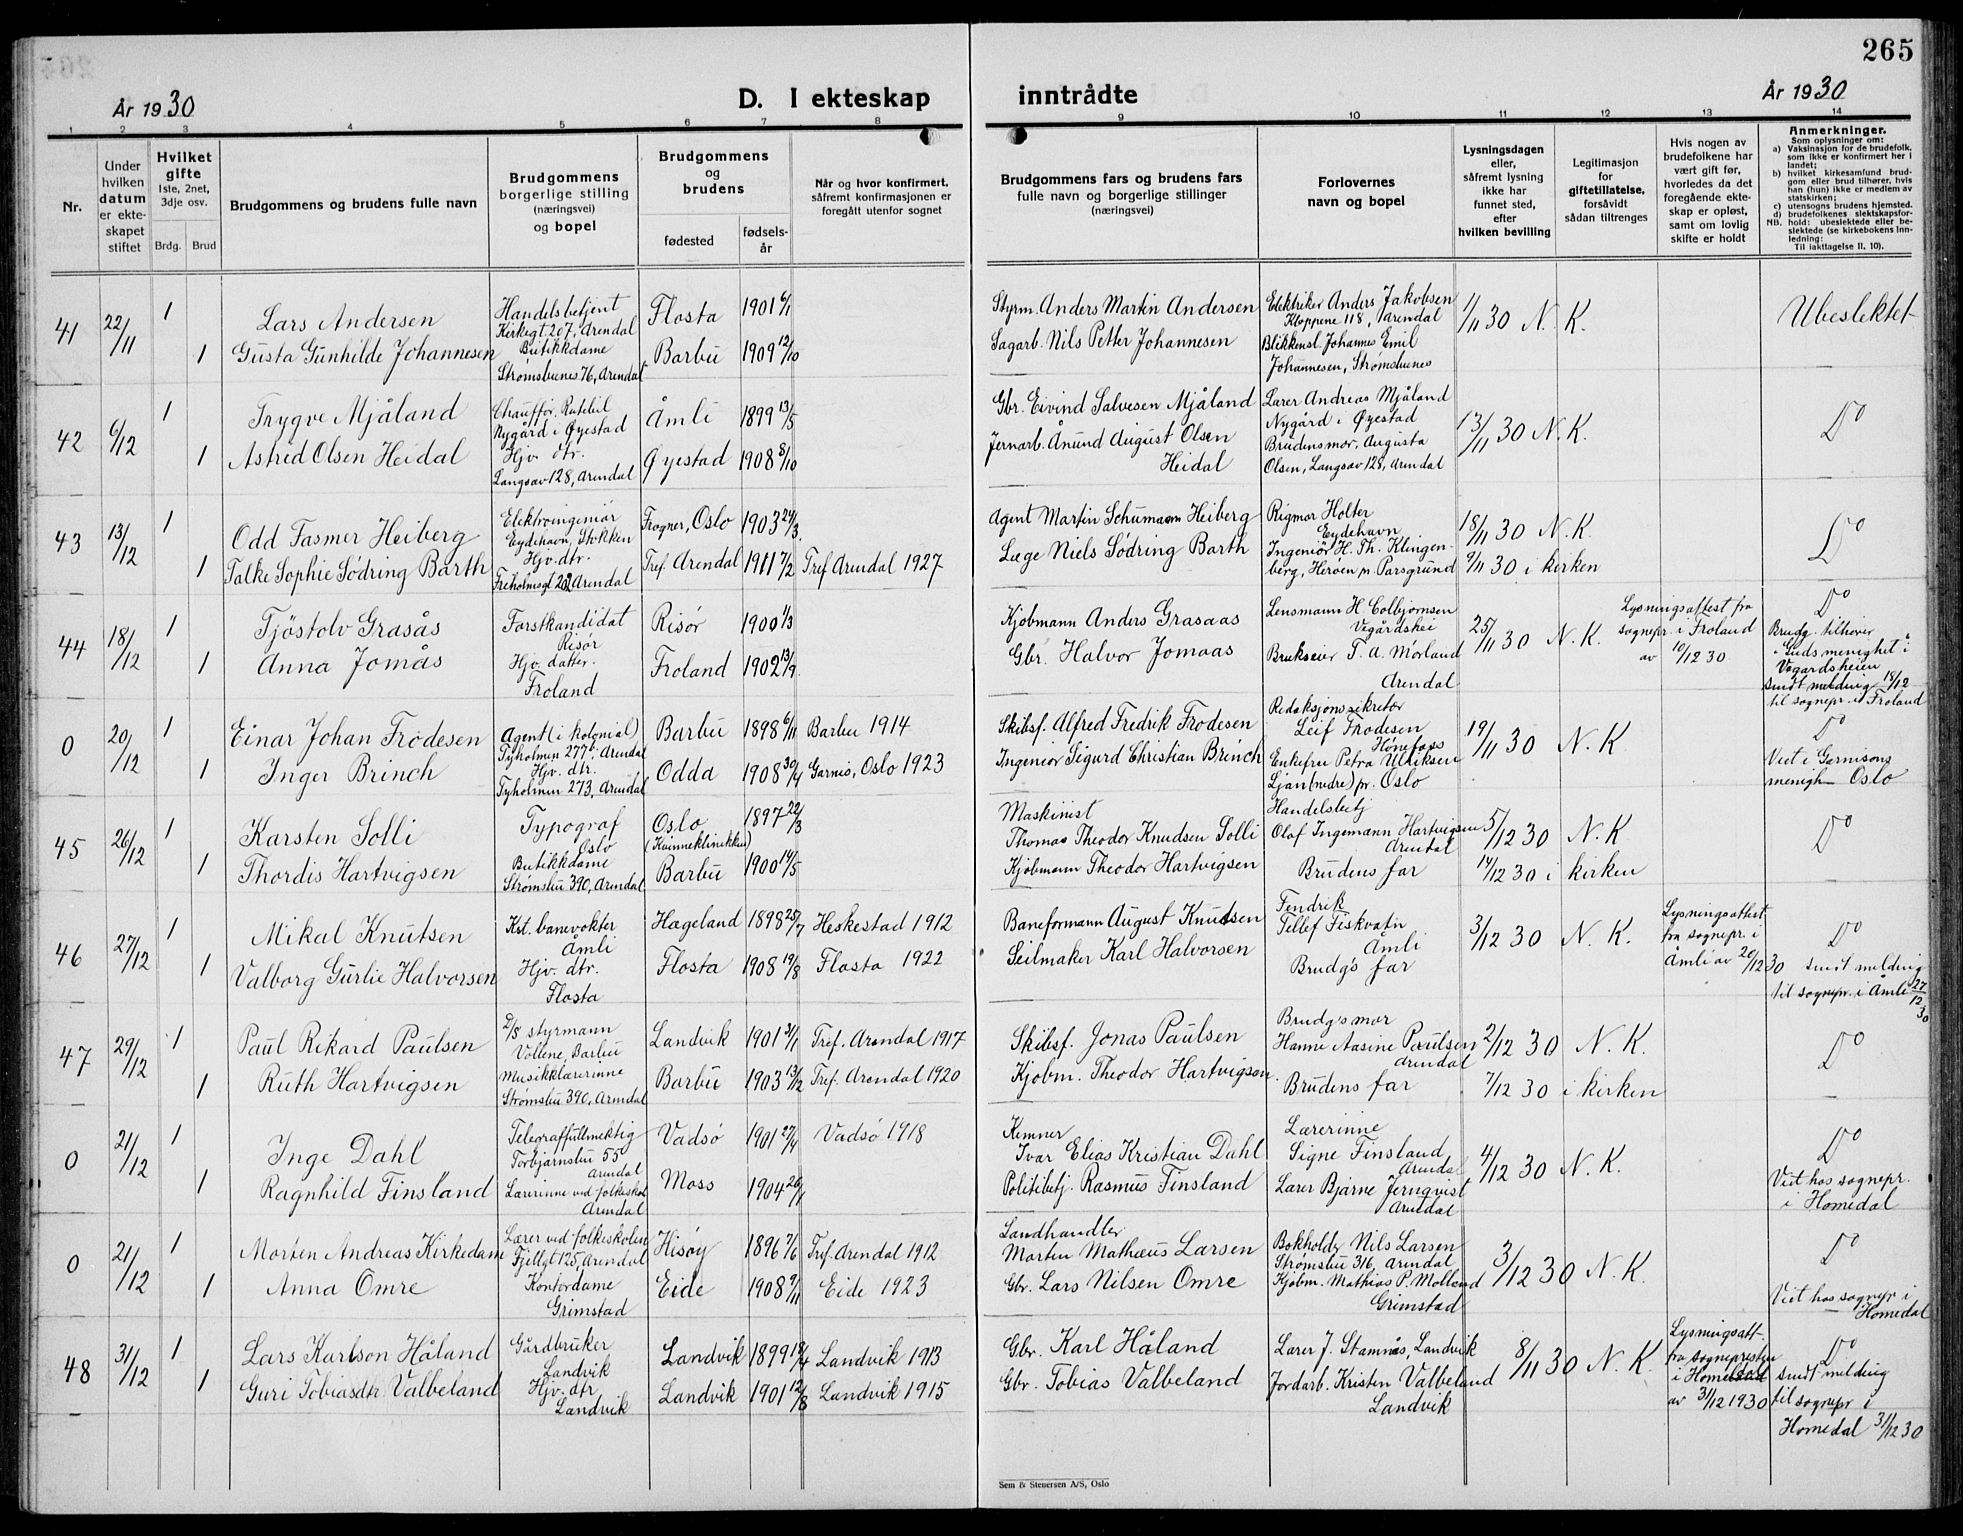 265
År 1930
D. I ekteskap
inntrådte
År 1930
1 2 3 4 5 6 7 8
9 10 11 12 13 14
Nr.
Under hvilken datum er ekteskapet stiftet
Hvilket gifte
1ste, 2net, 3dje osv.
Brdg. Brud
Brudgommens og brudens fulle navn
Brudgommens borgerlige stilling (næringsvei) og bopel
Brudgommens og brudens
fødested
fødselsår
Når og hvor konfirmert, såfremt konfirmasjonen er foregått utenfor sognet
Brudgommens fars og brudens fars fulle navn og borgerlige stillinger (næringsvei)
Forlovernes navn og bopel
Lysningsdagen eller, såfremt lysning ikke har funnet sted, efter hvilken bevilling
Legitimasjon for giftetillatelse, forsåvidt sådan tiltrenges
Hvis nogen av brudefolkene har vært gift før, hvorledes da det foregående ekteskap er opløst, samt om lovlig skifte er holdt
Anmerkninger.
Som oplysninger om:
a) Vaksinasjon for de brudefolk, som ikke er konfirmert her i landet;
b) hvilket kirkesamfund brudgom eller brud tilhører, hvis han (hun) ikke er medlem av statskirken;
c) utensogns brudens hjemsted.
d) brudefolkenes slektskapsforhold: ubeslektede eller beslektede (se kirkebokens Innledning:
NB. Til iakttagelse II, 10).
41 22/11 1 Lars Andersen Handelsbetjent Kirkegt 207, Arendal Flosta 1901 6/1 Styrm. Anders Martin Andersen Elektriker Anders Jakobsen Kloppene 118, Arendal 1/11 30 N. K. Ubeslektet
1 Gusta Gunhilde Johannesen Butikkdame Strømsbunes 76, Arendal Barbu 1909 12/10 Sagarb. Nils Petter Johannesen Blikkensl. Johannes Emil Johannesen, Strømsbunes
42 6/12 1 Trygve Mjåland Chauffør, Rutebil Nygård i Øyestad Åmli 1899 13/5 Gbr. Eivind Salvesen Mjåland Lærer Andreas Mjåland Nygård i Øyestad 13/11 30 N. K. Do
1 Astrid Olsen Heidal Hjv. dtr. Langsæv 128, Arendal Øyestad 1908 8/10 Jernarb. Ånund August Olsen Heidal Brudensmor, Augusta Olsen, Langsæv 128, Arendal
43 13/12 1 Odd Fasmer Heiberg Elektroingeniør Eydehavn, Stokken Frogner, Oslo 1903 24/3 Agent Martin Schumann Heiberg Rigmor Holter Eydehavn 18/11 30 N. K. Do
1 Talke Sophie Södring Barth Hjv. dtr. Arendal Tref. Arendal 1911 7/2 Tref Arendal 1927 Læge Niels Södring Barth Ingeniør H. Th. Klingenberg, Herøen p. Porsgrund 9/11 30 i kirken
44 18/12 1 Tjöstolv Grasås Forstkandidat Risør Risör 1900 1/3 Kjøbmann Anders Grasaas Lensmann H. Colbjørnsen Vegårdshei 25/11 30 N. K. Lysningsattest fra sognepr. i Froland av 10/12 30 Do
1 Anna Jomås Hjv. datter. Froland Froland 1902 13/9 Gbr. Halvor Jomaas Brukseier T. A. Mörland Arendal Brudg. tilhører Guds menighet i Vegårdsheien sendt melding 18/12 til sognepr. i Froland
0 20/12 1 Einar Johan Frödesen Agent (i kolonial) Tyholmen 277, Arendal Barbu 1898 6/11 Barbu 1914 Skibsf. Alfred Fredrik Frodesen Redaksjonssekretær Leif Frodesen Hönefoss 19/11 30 N. K. Do
1 Inger Brinch Hjv. dtr. Tyholmen 273, Arendal Odda 1908 30/4 Garnis, Oslo 1923 Ingeniør Sigurd Christian Brinch Enkefru Petra Ulriksen Ljan (nedre) pr. Oslo Viet i Garnisons menigh Oslo
45 26/12 1 Karsten Solli Typograf Oslo Oslo (Kvinneklinikken) 1897 22/3 Maskinist Thomas Theodor Knudsen Solli Handelsbetj Olaf Ingemann Hartvigsen Arendal 5/12 30 N. K. Do
1 Thordis Hartvigsen Butikkdame Strømsbu 390, Arendal Barbu 1900 14/5 Kjøbmann Theodor Hartvigsen Brudens far 14/12 30 i kirken
46 27/12 1 Mikal Knutsen Kst. banevokter Åmli Hægeland 1898 25/7 Heskestad 1912 Baneformann August Knutsen Fendrik Tellef Fiskvatn Åmli 3/12 30 N. K. Lysningsattest fra sognepr. i Åmli av 20/12 30 Do
1 Valborg Gurlie Halvorsen Hjv. dtr. Flosta Flosta 1908 19/8 Flosta 1922 Seilmaker Karl Halvorsen Brudg's far sendt melding til sognepr. i Åmli 27/12 30
47 29/12 1 Paul Rikard Paulsen D/S styrmann Vollene, Barbu Landvik 1901 31/1 Tref. Arendal 1917 Skibsf. Jonas Paulsen Brudg's mor Hanne Aasine Paulsen Arendal 2/12 30 N. K. Do
1 Ruth Hartvigsen Musikklærerinne Strømsbu 390, Arendal Barbu 1903 13/2 Tref. Arendal 1920 Kjøbm. Theodor Hartvigsen Brudens far 7/12 30 i kirken
0 21/12 1 Inge Dahl Telegraffullmektig Torbjørnsbu 55 Arendal Vadsö 1901 27/4 Vadsö 1918 Kemner Ivar Elias Kristian Dahl Lærerinne Signe Finsland Arendal 4/12 30 N. K. Do
1 Ragnhild Finsland Lærerinne ved folkeskol Arendal Moss 1904 26/1 Politibetj. Rasmus Finsland Lærer Bjarne Jernqvist Arendal Viet hos sognepr. i Homedal
0 21/12 1 Morten Andreas Kirkedam Lærer ved folkeskolen Fjellgt 125, Arendal Hisöy 1896 7/6 Tref. Arendal 1912 Landhandler Martin Mathæus Larsen Bokholder Nils Larsen Strømsbu 316, Arendal 3/12 30 N. K. Do
1 Anna Omre Kontordame Grimstad Eide 1908 9/11 Eide 1923 Gbr. Lars Nilsen Omre Kjøbm. Mathias P. Molland Grimstad Viet hos sognepr i Homedal
48 31/12 1 Lars Karlson Håland Gårdbruker Landvik Landvik 1899 18/4 Landvik 1913 Gbr. Karl Håland Lærer J. Stamnes, Landvik 8/11 30 N. K. Lysningsatt. fra sognepresten i Homedal av 31/12 1930 Do
1 Guri Tobiasdtr Valbeland Hjv. dtr Landvik Landvik 1901 12/8 Landvik 1915 Gbr. Tobias Valbeland Jordarb. Kristen Valbeland Landvik sendt melding til sognepr i Homedal 31/12 30
Sem & Stenersen A/S, Oslo